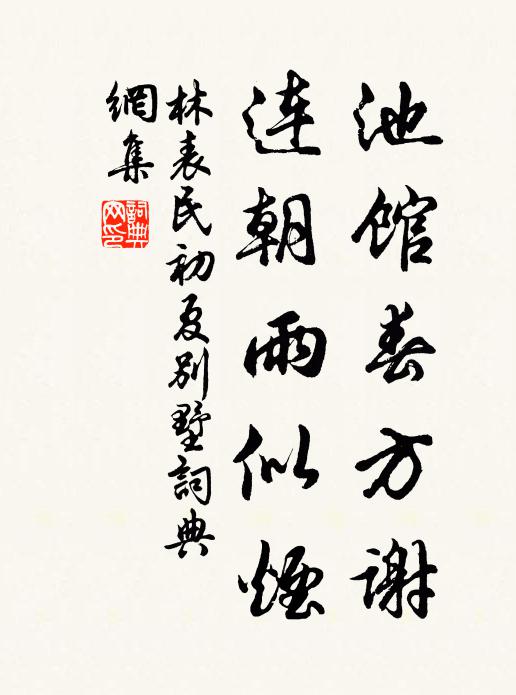 池館春方謝
連朝雨似煙
林表民初夏別墅詞典
網集
詞典網印